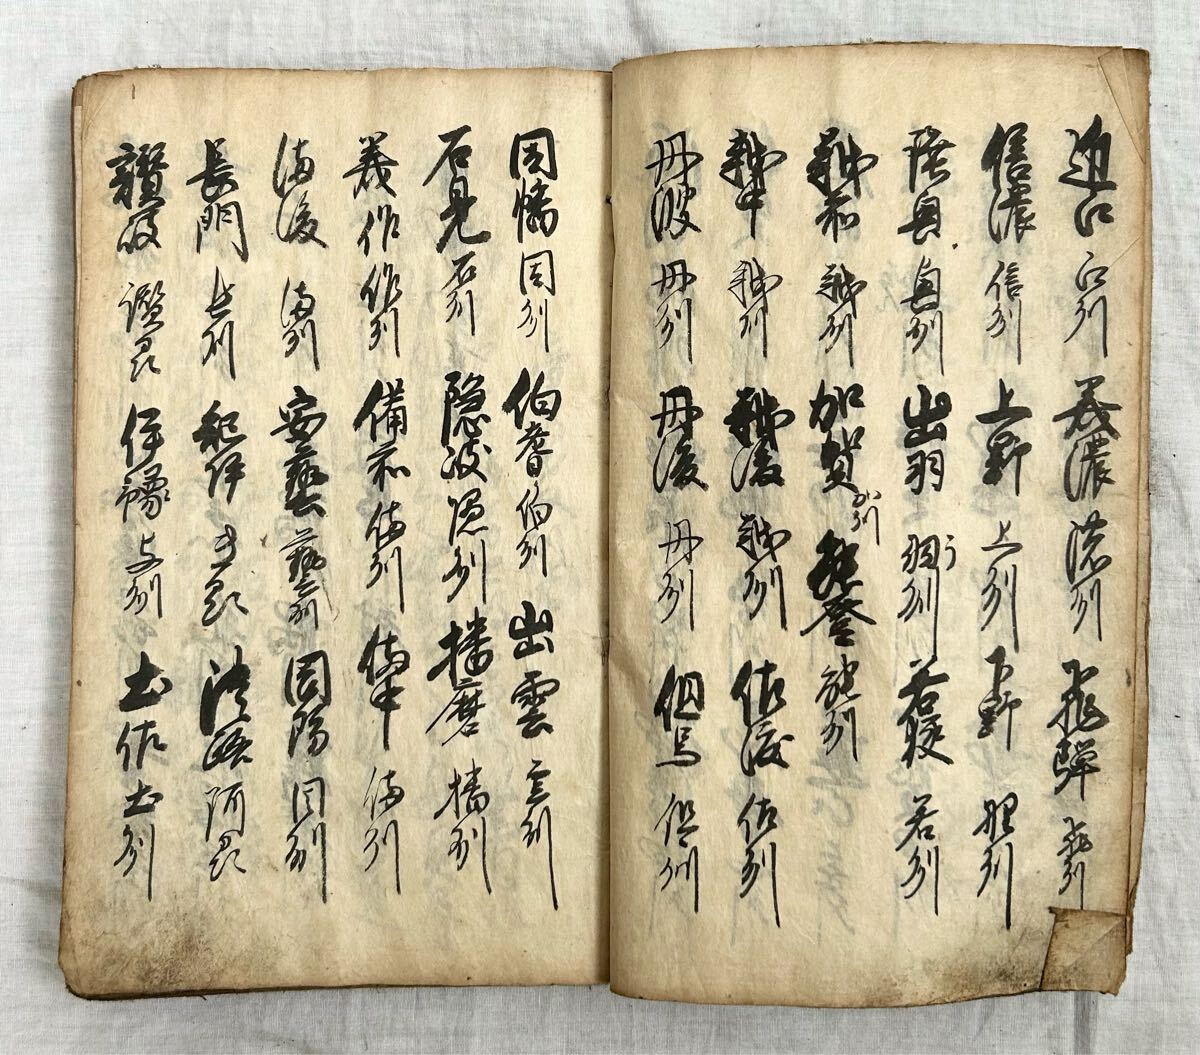 近江 江州 美濃 濃州 飛騨 飛州
信濃 信州 上野 上州 下野 野州
陸奥 奥州 出羽 羽州 う 若狭 若州
越前 越州 加賀 か州 能登 能州
越中 越州 越後 越州 佐渡 佐州
丹波 丹州 丹後 丹州 但馬 但州
因幡 因州 伯耆 伯州 出雲 雲州
石見 石州 隠岐 隠州 播磨 播州
美作 作州 備前 備州 備中 備州
備後 備州 安藝 藝州 周防 周州
長門 長州 紀伊 紀州 淡路
讃岐 讃州 伊豫 与州 土佐 土州